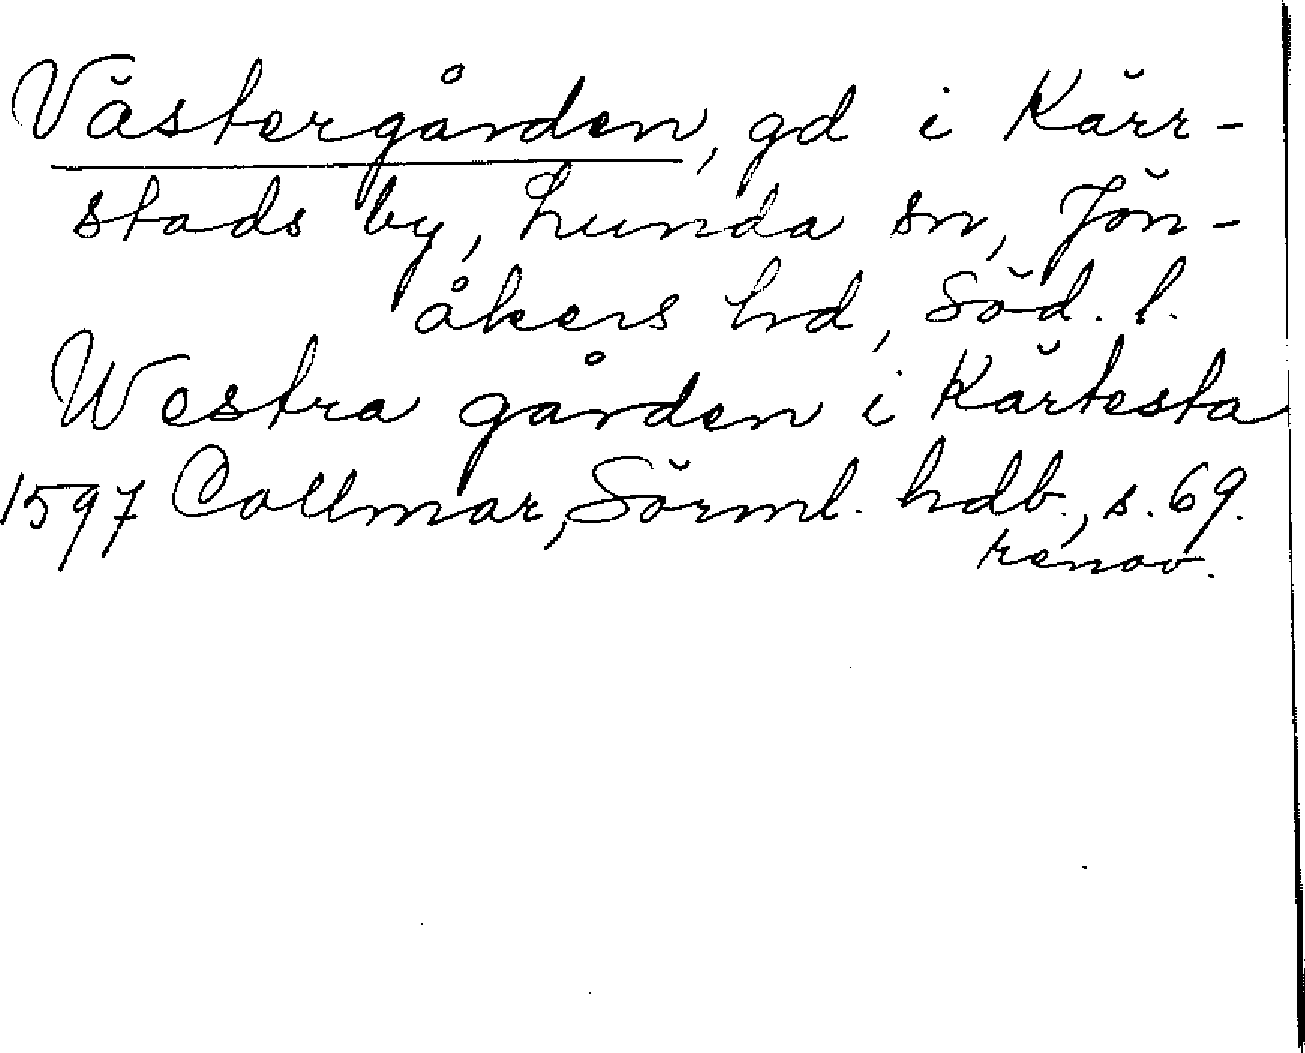 Västergården, gd i Kärr-
stads by, Lunda sn, Jön-
åkers hd, Söd. l.
Westra gården i Kärtesta
1597 Collmar, Sörml. hdb., s. 69.
renov.